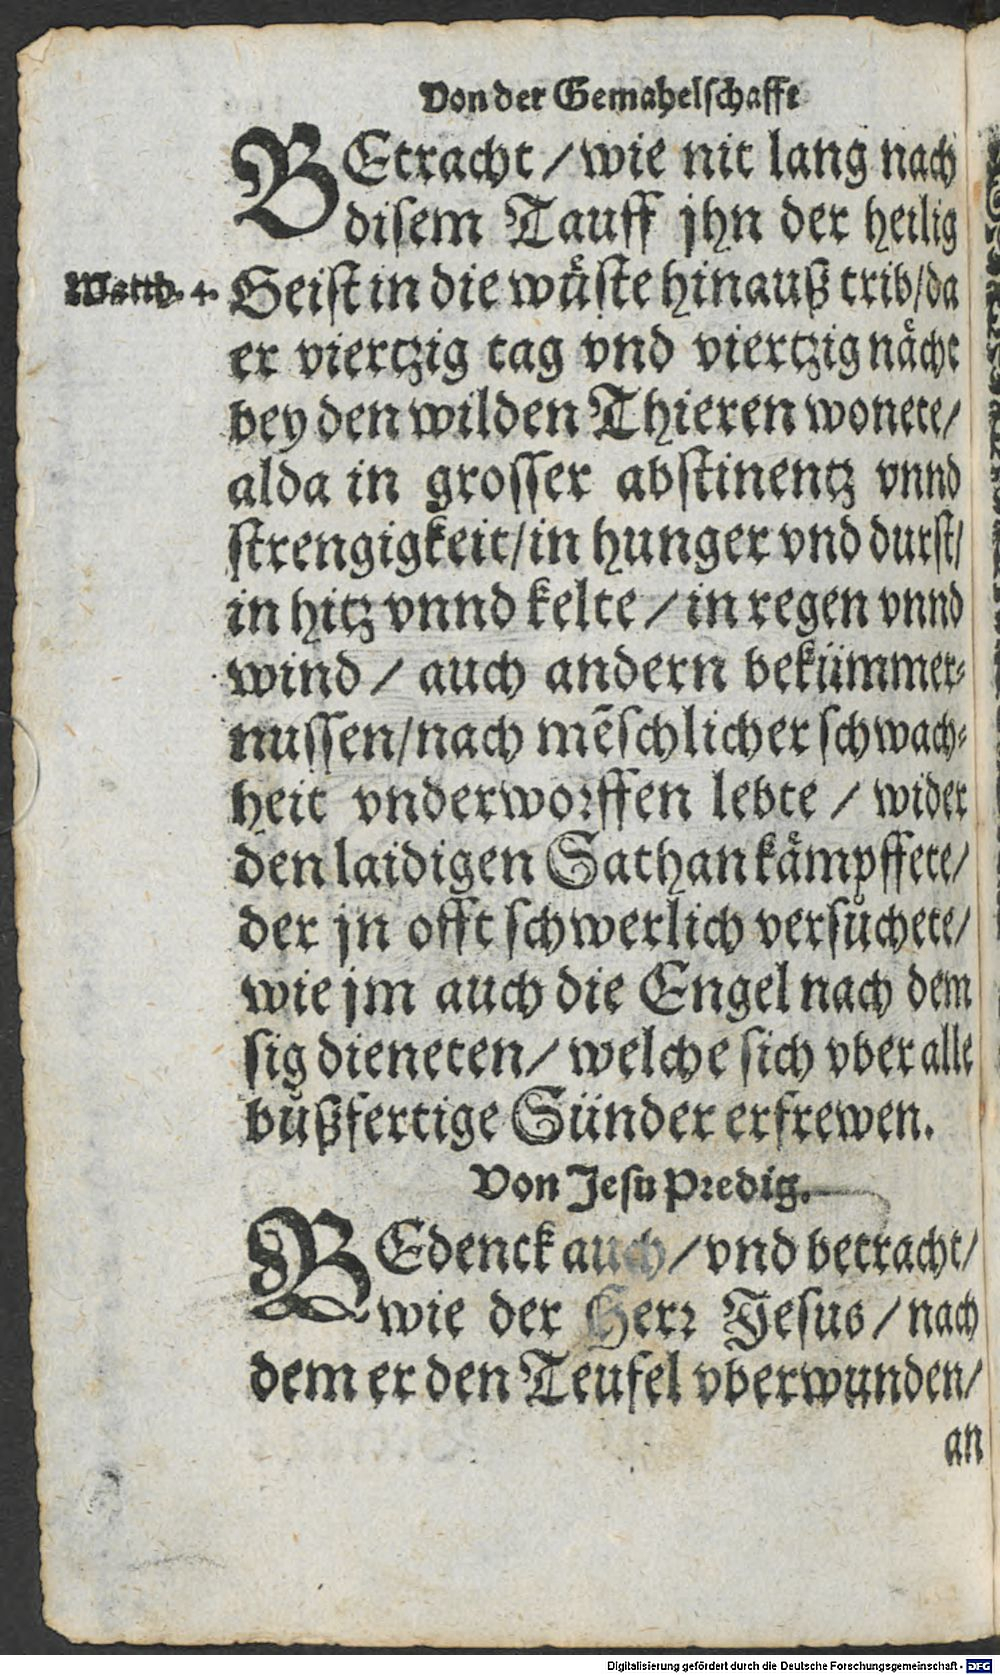 Von der Gemahelschafft
BEtracht / wie nit lang nach
disem Tauff jhn der heilig
Matth. 4.
Geist in die wuͤste hinauß trib / da
er viertzig tag vnd viertzig naͤcht
bey den wilden Thieren wonete /
alda in grosser abstinentz vnnd
strengigkeit / in hunger vnd durst /
in hitz vnnd kelte / in regen vnnd
wind / auch andern bekümmer-
nussen / nach mẽschlicher schwach-
heit vnderworffen lebte / wider
den laidigen Sathan kaͤmpffete /
der jn offt schwerlich versuͦchete /
wie jm auch die Engel nach dem
sig dieneten / welche sich vber alle
buͦßfertige Sünder erfrewen.
Von Jesu Predig.
BEdenck auch / vnd betracht /
wie der Herr Jesus / nach
dem er den Teufel vberwunden /
an
Digitalisierung gefördert durch die Deutsche Forschungsgemeinschaft - DFG